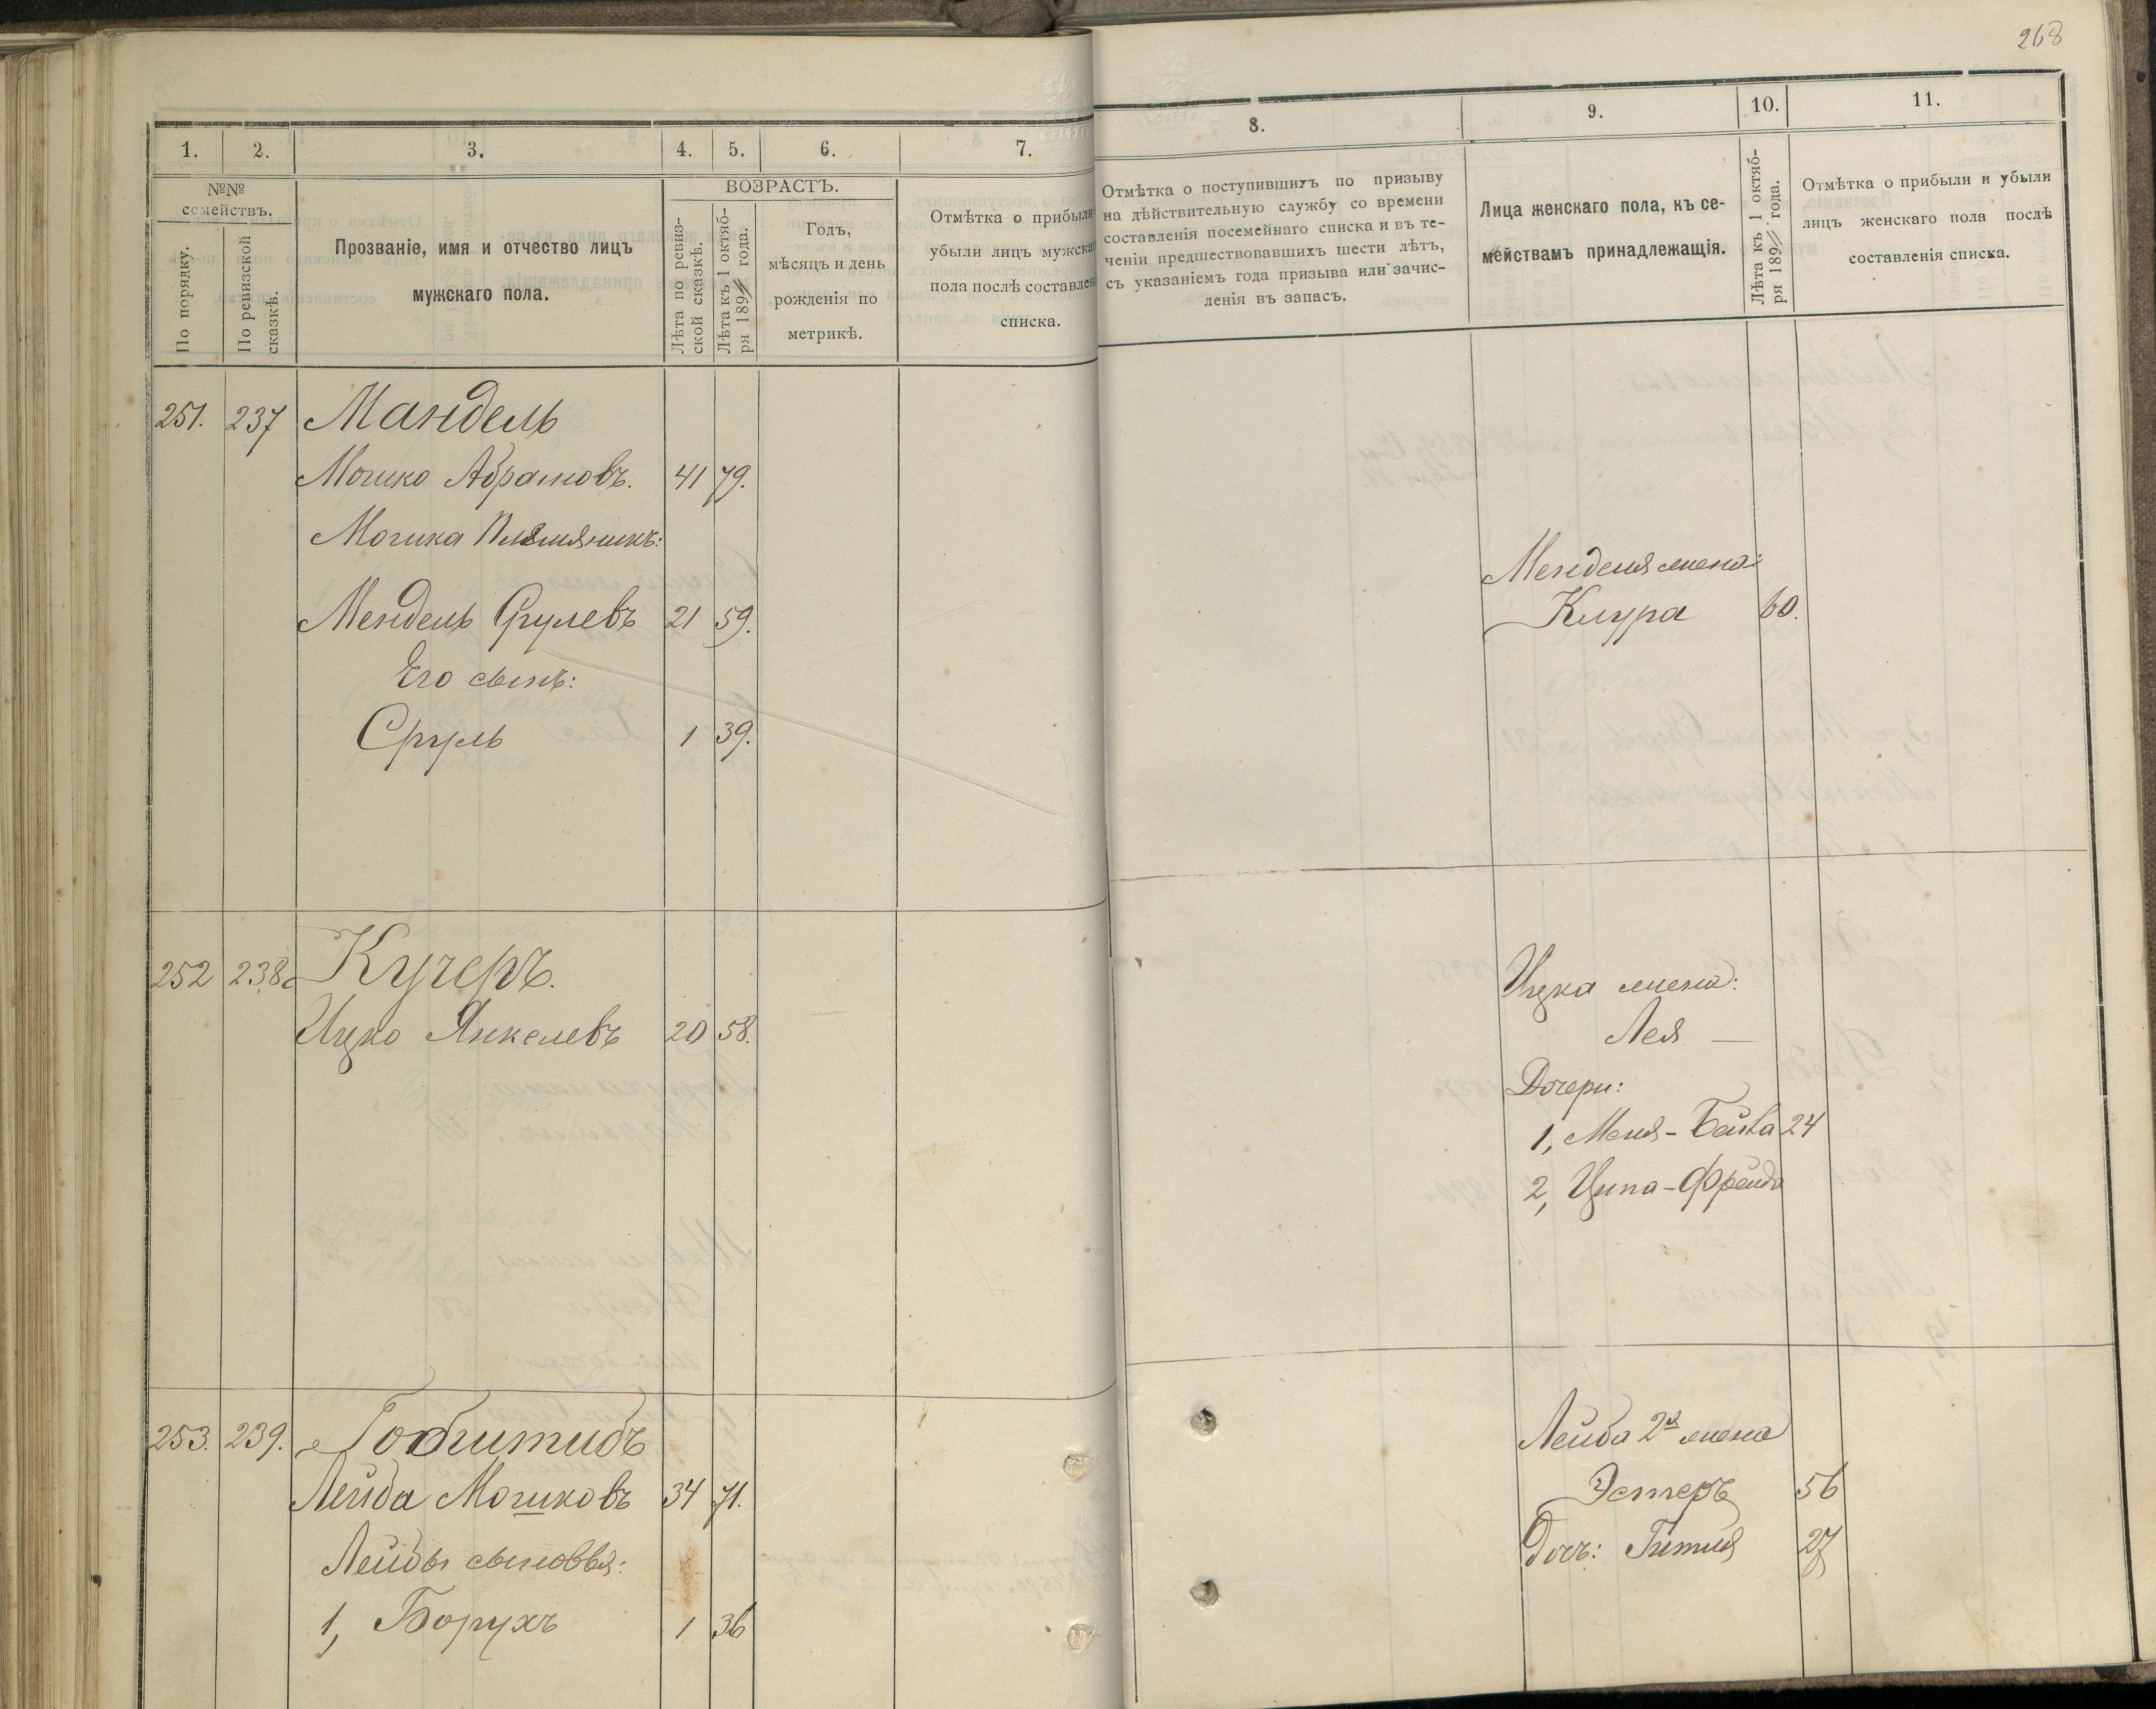 268
1. 2. 3. 4. 5. 6. 7.
№№ семействъ.
По порядку.
По ревизской сказкѣ.
Прозваніе, имя и отчество лицъ
мужскаго пола.
ВОЗРАСТЪ.
Лѣта по ревиз-
ской сказкѣ.
Лѣта къ 1 октяб-
ря 189 года.
Годъ,
мѣсяцъ и день
рожденія по
метрикѣ.
Отмѣтка о прибыли
убыли лицъ мужска
пола послѣ составлен
списка.
251. 237 Мандель
Мошко Абрамовъ. 41 79.
Мошка племяникъ:
Мендель Срулевъ 21 59.
Его сынъ:
Сруль 1 39.
252 238 Кучеръ.
Ицко Янкелевъ 20 58.
253. 239.
Лейба Мошковъ 34 71.
Лейбы сыновья:
1, Борухъ 1 36
8. 9. 10. 11.
Отмѣтка о поступившихъ по призыву
на дѣйствительную службу со времени
составленія посемейнаго списка и въ те-
ченіи предшествовавшихъ шести лѣтъ,
съ указаніемъ года призыва или зачис-
ленія въ запасъ.
Лица женскаго пола, къ се-
мействамъ принадлежащія.
Лѣта къ 1 октяб-
ря 189 года.
Отмѣтка о прибыли и убыли
лицъ женскаго пола послѣ
составленія списка.
Менделя жена:
60.
Ицка жена:
Лея —
Дочери:
1, Меня-Бейла 24
2, Ципа-Фрейда
Лейба 2я жена
Эстеръ 56
Дочь: Гитля 27